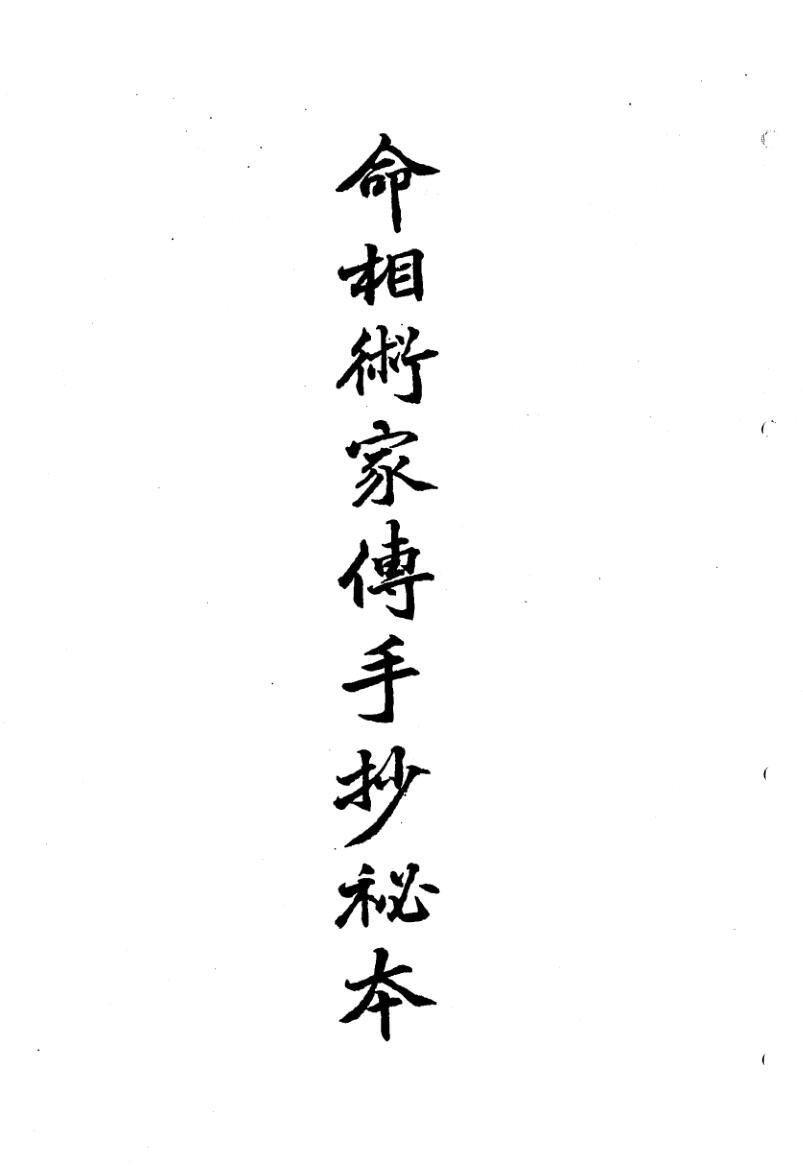 命相術家傳手抄祕本